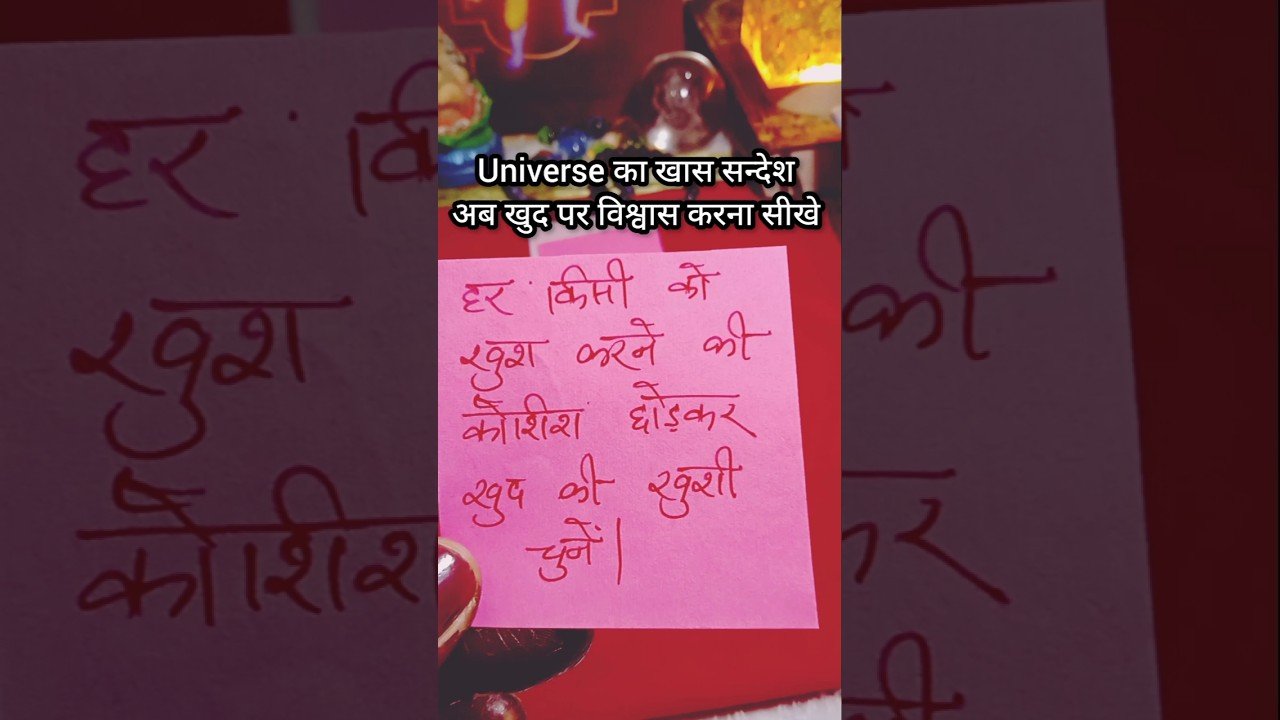 Universe का खास सन्देश
अब खुद पर विश्वास करना सीखे
हर किसी को
खुश करने की
कोशिश छोड़कर
खुद की खुशी
चुनें|